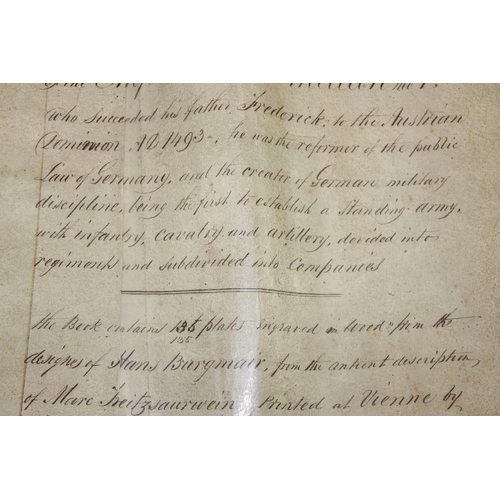 who succeeded his father, Frederick, to the Austrian
Dominion AD 1493, he was the reformer of the public
Law of Germany, and the creator of German military
discipline, being the first to establish a standing army,
with infantry, cavalry and artillery, devided into
regiments and subdivided into Companies
the Book contains 135 plates engraved in wood from the
135
designes of Hans Burgmair, from the antient description
of Marc Treitzsaurwein, Printed at Vienne by